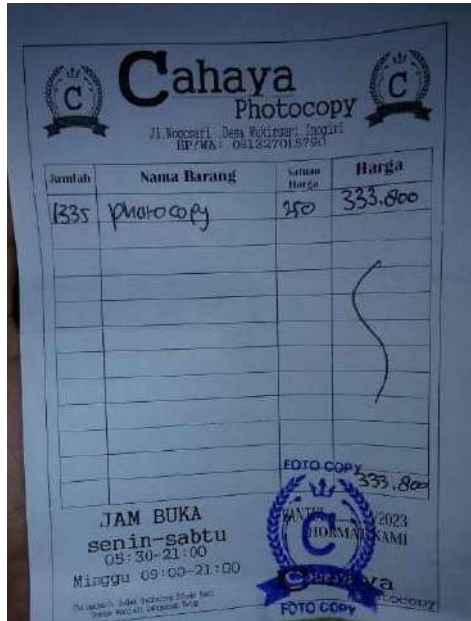 C C
Cahaya
Photocopy
Jl.Nogosari ,Desa Wukirsari Imogiri
HP/WA: 081327015790
Jumlah Nama Barang Satuan Harga Harga
1335 photocopy 250 333.800
FOTO COPY
333.800
JAM BUKA
senin-sabtu
05:30-21:00
Minggu 09:00-21:00
/2023
HORMAT KAMI
C
Cahaya
Photocopy
FOTO COPY